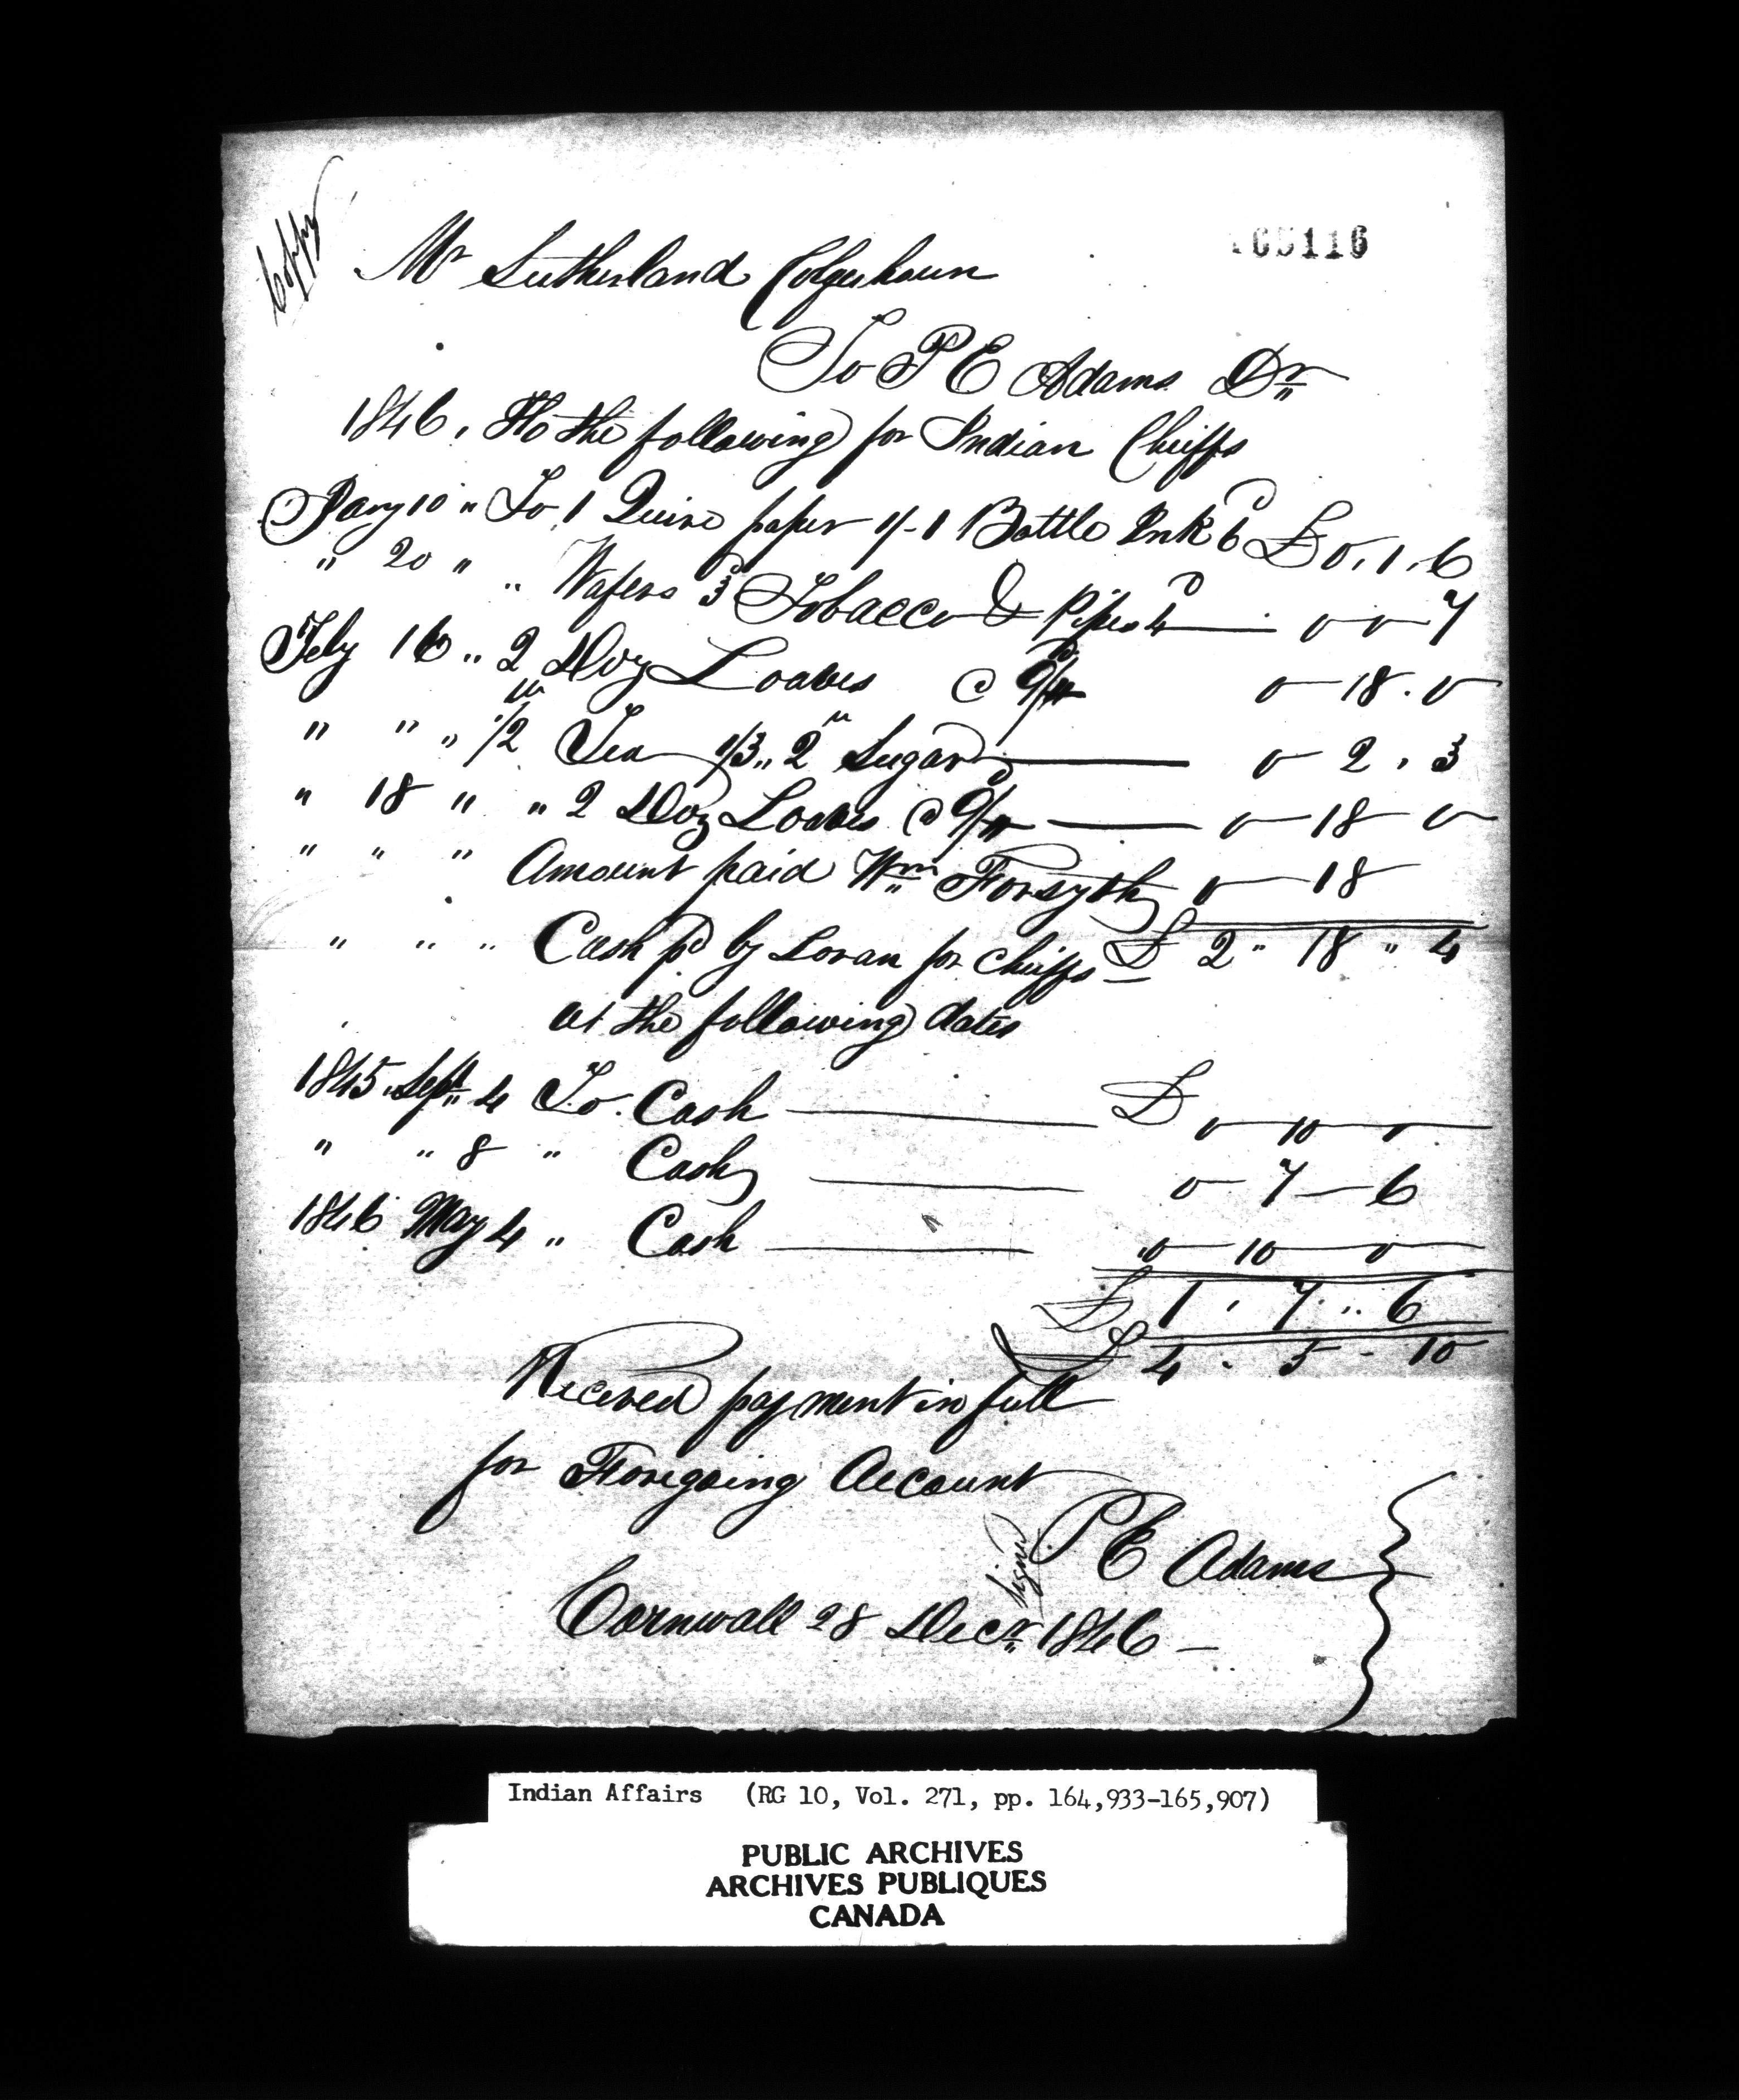 Coppy
165116
Mr Sutherland Colquhoun
To P E Adams Dr
1846, To the following for Indian Chiffs
Jany 10 " To 1 Quire paper 1/- 1 Bottle Ink 6d £ 0 . 1 . 6
" 20 " " Wafers 3d Tobacco & Pipes 4d — 0 — 0 — 7
Feby 16 " 2 Doz Loaves @ 9/ 0 — 18 . 0
" " " 1/2 lb Tea 1/3 " 2 lb Sugar — 0 — 2 . 3
" 18 " " 2 Doz Loaves @ 9/ — 0 — 18 — 0
" " " Amount paid Wm Forsyth 0 — 18
" " " Cash pd by Loran for Chiffs £ 2 " 18 " 4
at the following dates
1845 Sept 4 To Cash — £ 0 — 10 — 0
" " 8 " Cash — 0 — 7 — 6
1846 May 4 " Cash — 0 — 10 — 0
£ 1 , 7 .. 6
£ 4 . 5 - 10
Received payment in full
for Foregoing Account
Signed P E Adams
Cornwall 28 Decr 1846 —
Indian Affairs (RG 10, Vol. 271, pp. 164,933-165,907)
PUBLIC ARCHIVES
ARCHIVES PUBLIQUES
CANADA